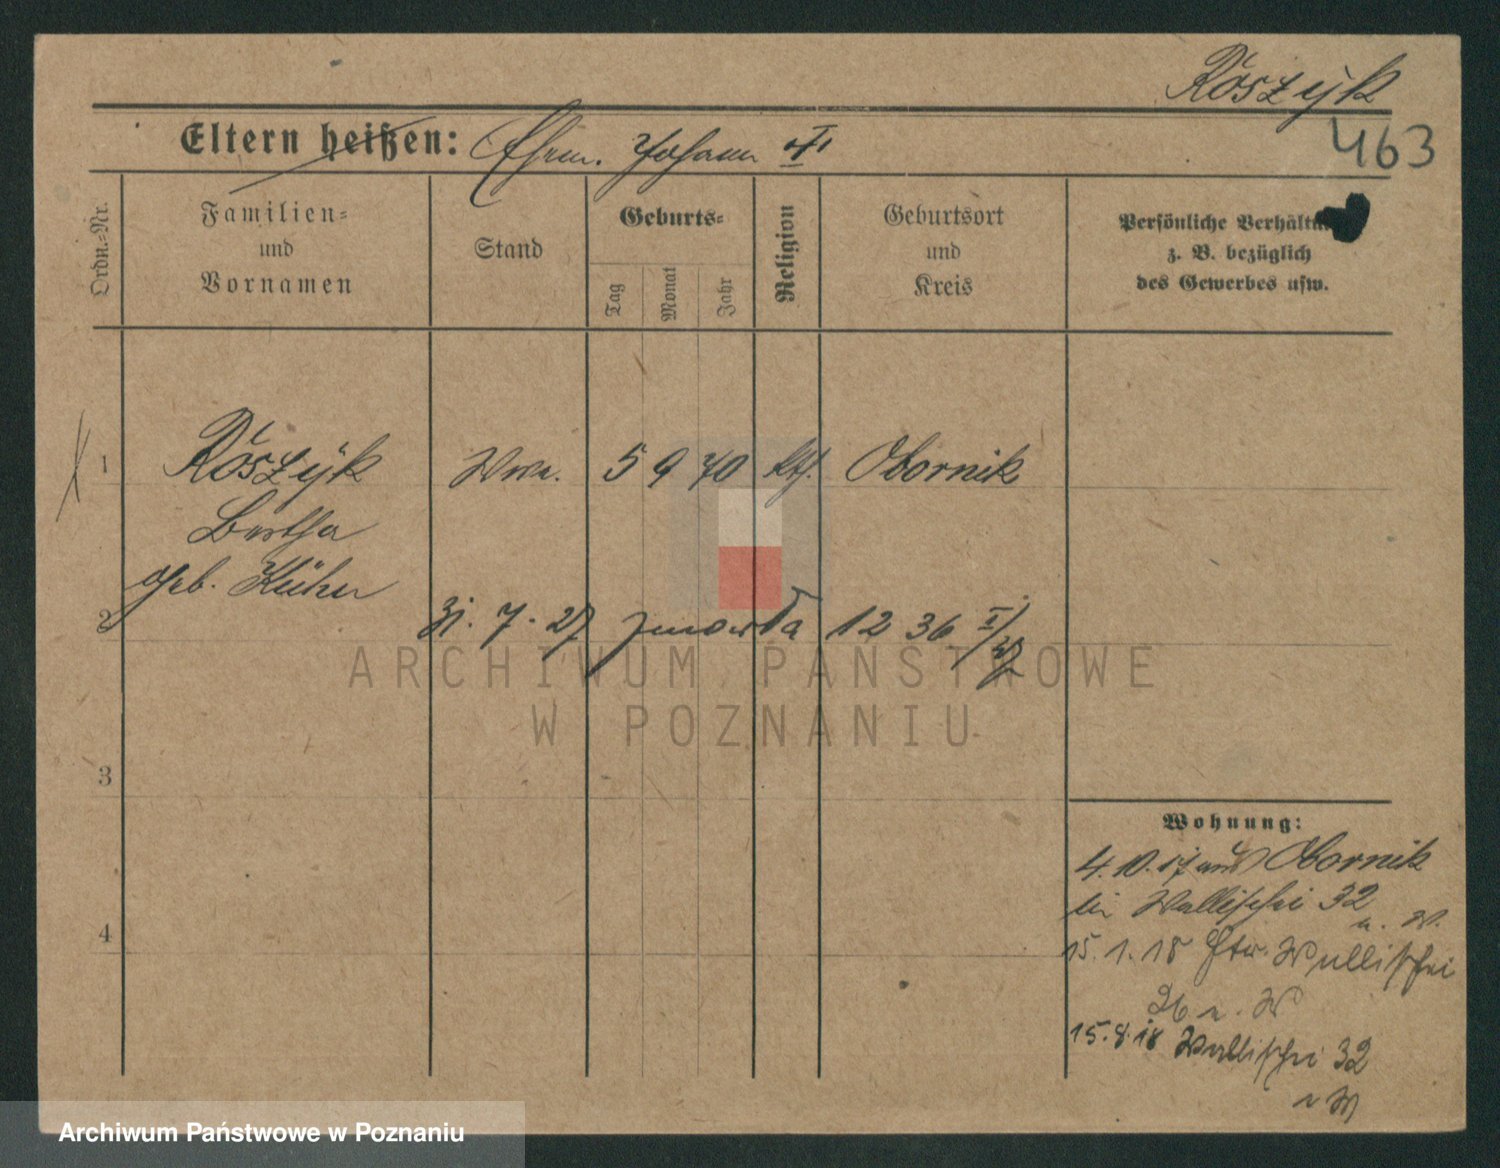 Rószyk
463
Eltern heißen: Ehem. Johann
Ordn.-Nr.
Familien-
und
Vornamen
Stand
Geburts-
Tag
Monat
Jahr
Religion
Geburtsort
und
Kreis
Persönliche
z. B. bezüglich
des Gewerbes usw.
1 Rószyk Wwe. 5 9 70 kth. Obornik
Bertha
geb. Kühn
2
31. 7. 27 zmarła 1236 I/27
ARCHIWUM PAŃSTWOWE
W POZNANIU
3
4
Wohnung:
4. 10. 17 aus Obornik
Wallischei 32
a. W.
15. 1. 18 Wallischei
26 a. W
15. 8. 18 Wallischei 32
a W
Archiwum Państwowe w Poznaniu